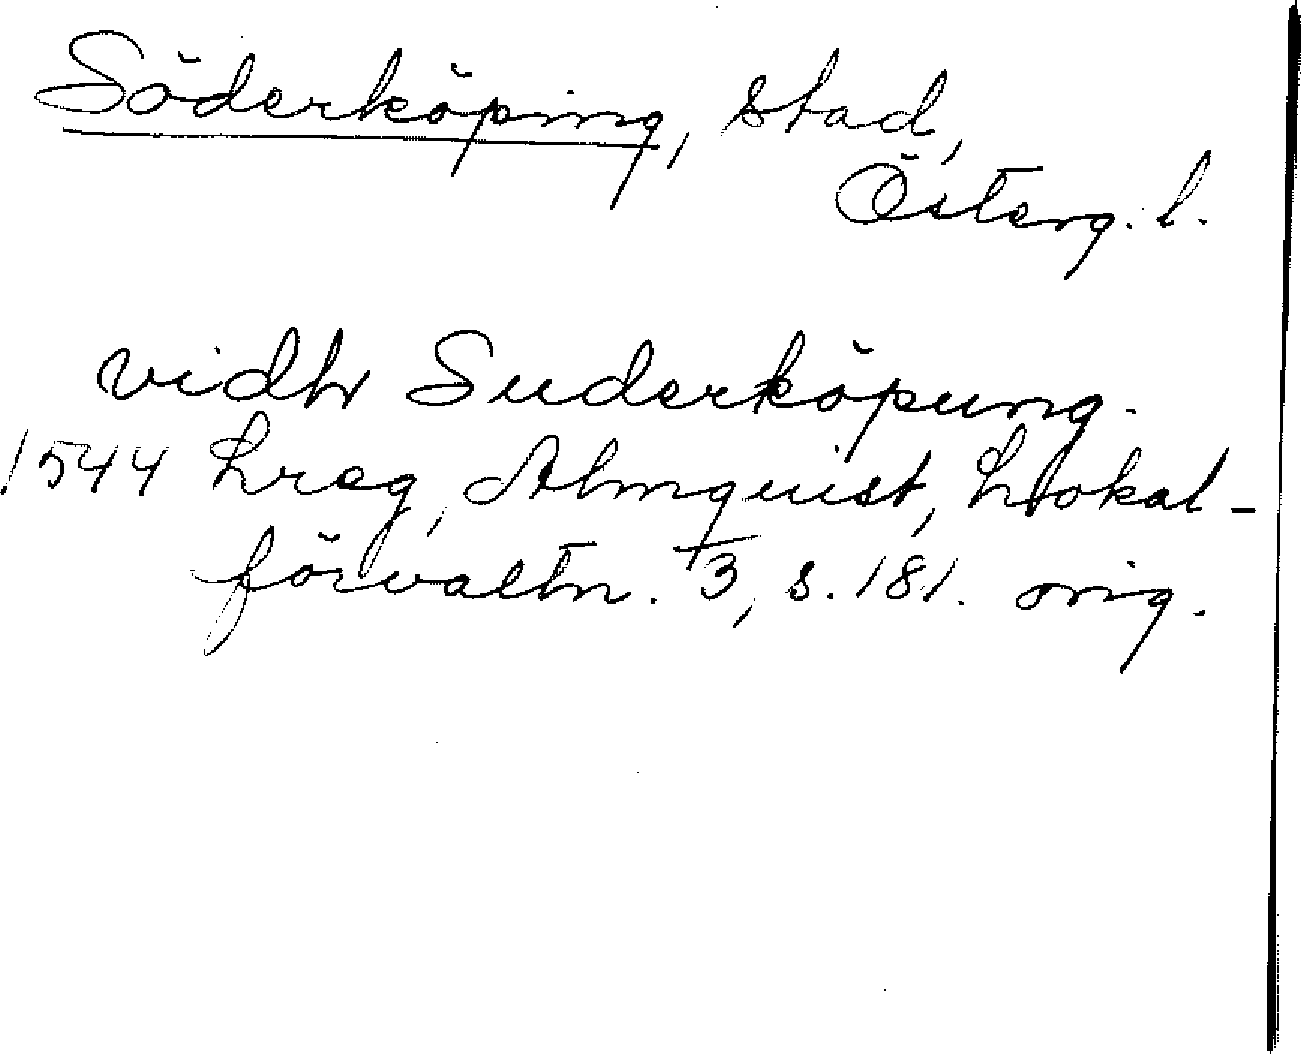 Söderköping, stad,
Österg. l.
vidh Suderköpung.
1544 Lreg, Almquist, Lokal-
förvaltn. 3, s. 181. orig.